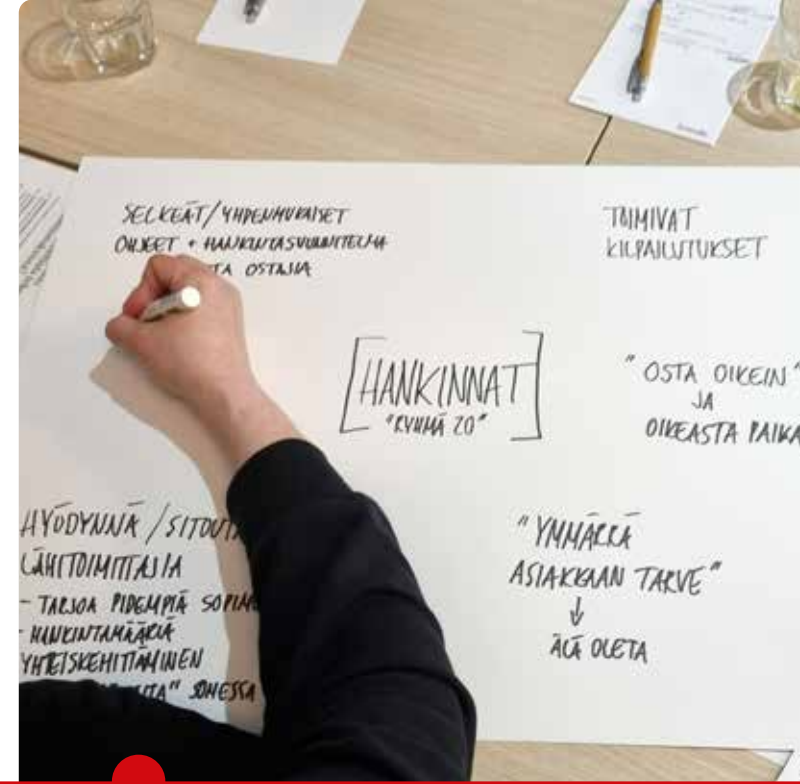 SELKEÄT/YHDENMUKAISET
OHJEET + HANKINTASUUNNITELMA
TA OSTAJIA
TOIMIVAT
KILPAILUTUKSET
[HANKINNAT]
"RYHMÄ 20"
"OSTA OIKEIN"
JA
OIKEASTA PAIKA
HYÖDYNNÄ/SITOUTA
LÄHITOIMITTAJIA
- TARJOA PIDEMPIÄ SOPIM
- HANKINTAMÄÄRIÄ
YHTEISKEHITTÄMINEN
"YMMÄRRÄ
ASIAKKAAN TARVE"
↓
ÄLÄ OLETA